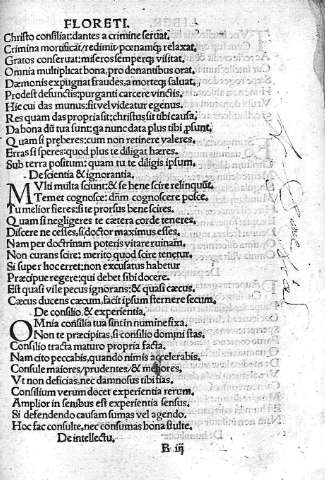 FLORETI.
Christo consiliat: dantes a crimine seruat,
Crimina mortificat, redimit, pœnamq; relaxat,
Gratos conseruat: miseros semperq; visitat,
Omnia multiplicat bona, pro donantibus orat,
Dæmonis expugnat fraudes, a morteq; saluat,
Prodest defunctis: purganti carcere vinctis,
Hic cui das munus: sit vel videatur egenus.
Res quam das propria sit: christus sit tibi causa,
Da bona dũ tua sunt: q̃a nunc data plus tibi ꝓsunt,
Quam si præberes: cum non retinere valeres.
Erras si speres: quod plus te diligat hæres.
Sub terra positum: quam tu te diligis ipsum.
De scientia & ignorantia.
MVlti multa sciunt: & se bene scire relinquũt.
Temet cognosce: dñm cognoscere posce.
Tu melior fieres: si te prorsus bene scires.
Quam si negligeres te cætera corde teneres.
Discere ne cesses, si doctor maximus esses,
Nam per doctrinam poteris vitare ruinam.
Non curans scire: merito quod scire tenetur.
Si super hoc erret: non excusatus habetur
Præcipue regere: qui debet sibi docere.
Est quasi vile pecus ignorans: & quasi cæcus,
Cæcus ducens cæcum, facit ipsum sternere secum.
De consilio, & experientia.
OMnia consilia tua sint in numine fixa.
Non te præcipitas, si consilio domini stas.
Consilio tracta maturo propria facta.
Nam cito peccabis, quando nimis accelerabis.
Consule maiores, prudentes, & meliores,
Vt non deficias, nec damnosus tibi fias.
Consilium verum docet experientia rerum.
Amplior in sensibus est experientia sensus.
Si defendendo causam sumas vel agendo.
Hoc fac consulte, nec consumas bona stulte.
De intellectu.
B iij